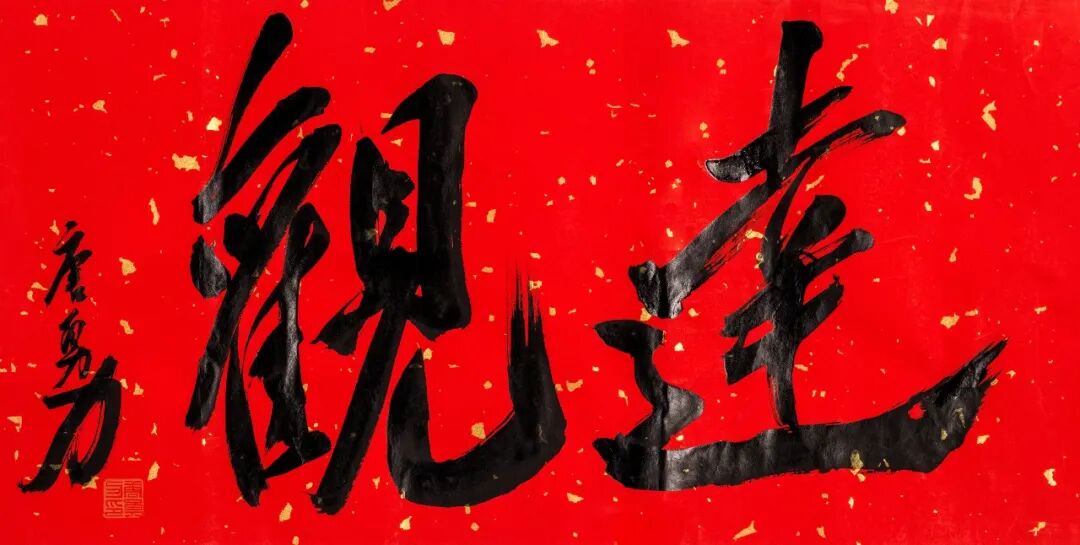 達觀
唐勇力